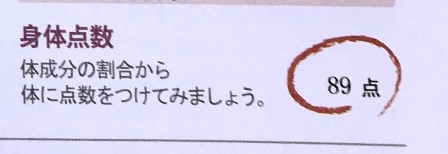 身体点数
体成分の割合から
体に点数をつけてみましょう。
89 点